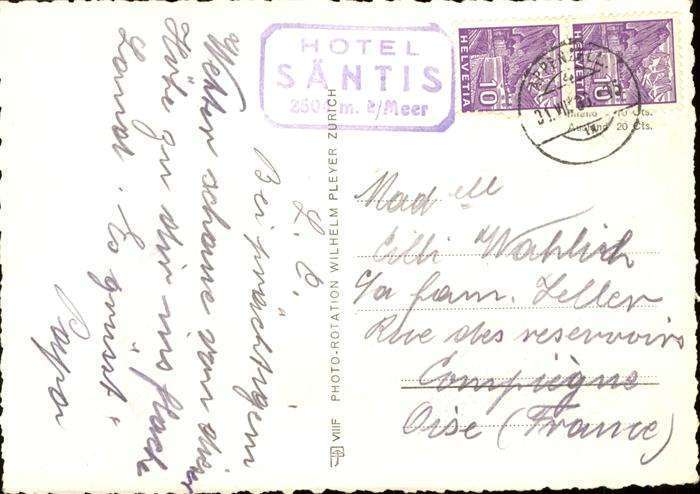 HOTEL
SÄNTIS
2504 m. ü/Meer
HELVETIA
10
HELVETIA
10
APPENZELL
Inland 10 Cts.
Ausland 20 Cts.
L. C.
Bei prächtigem
Wetter schaue von dieser
Höhe zu Dir ins flache
Land. Es grüsst
Papa
VIIIF PHOTO-ROTATION WILHELM PLEYER ZÜRICH
Mad elle
Cilli Wahlich
c/a fam. Zeller
Rue des reservoirs
Compiègne
Oise (France)